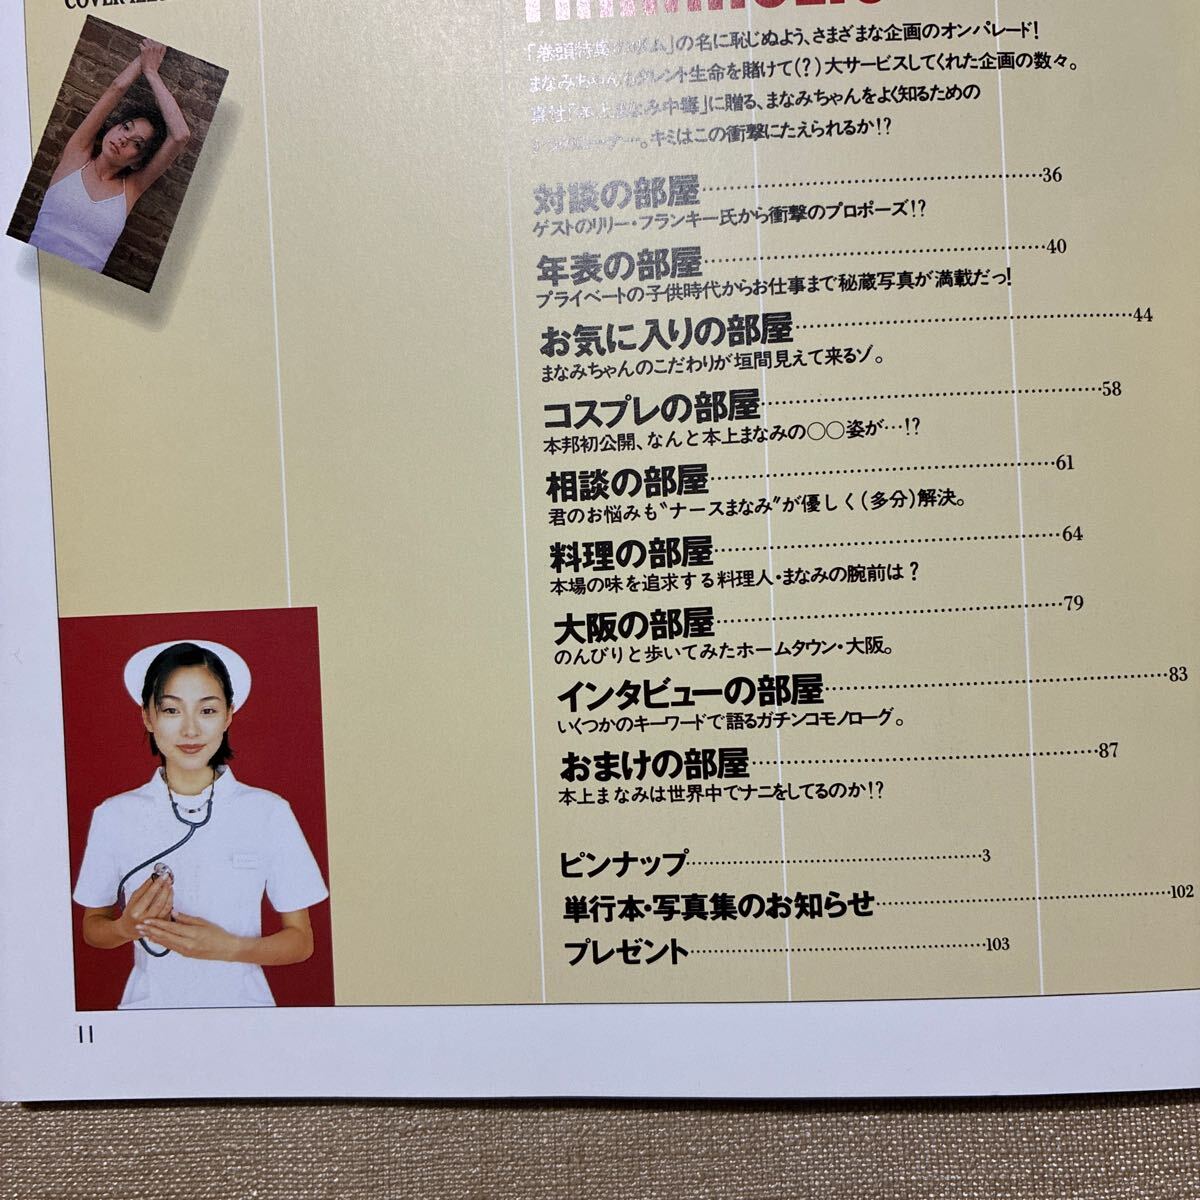 の名に恥じぬよう、さまざまな企画のオンパレード!
タレント生命を賭けて(?)大サービスしてくれた企画の数々。
に贈る、まなみちゃんをよく知るための
キミはこの衝撃にたえられるか!?
対談の部屋……36
ゲストのリリー・フランキー氏から衝撃のプロポーズ!?
年表の部屋……40
プライベートの子供時代からお仕事まで秘蔵写真が満載だっ!
お気に入りの部屋……44
まなみちゃんのこだわりが垣間見えて来るゾ。
コスプレの部屋……58
本邦初公開、なんと本上まなみの○○姿が…!?
相談の部屋……61
君のお悩みも〝ナースまなみ〟が優しく(多分)解決。
料理の部屋……64
本場の味を追求する料理人・まなみの腕前は?
大阪の部屋……79
のんびりと歩いてみたホームタウン・大阪。
インタビューの部屋……83
いくつかのキーワードで語るガチンコモノローグ。
おまけの部屋……87
本上まなみは世界中でナニをしてるのか!?
ピンナップ……3
単行本・写真集のお知らせ……102
プレゼント……103
11